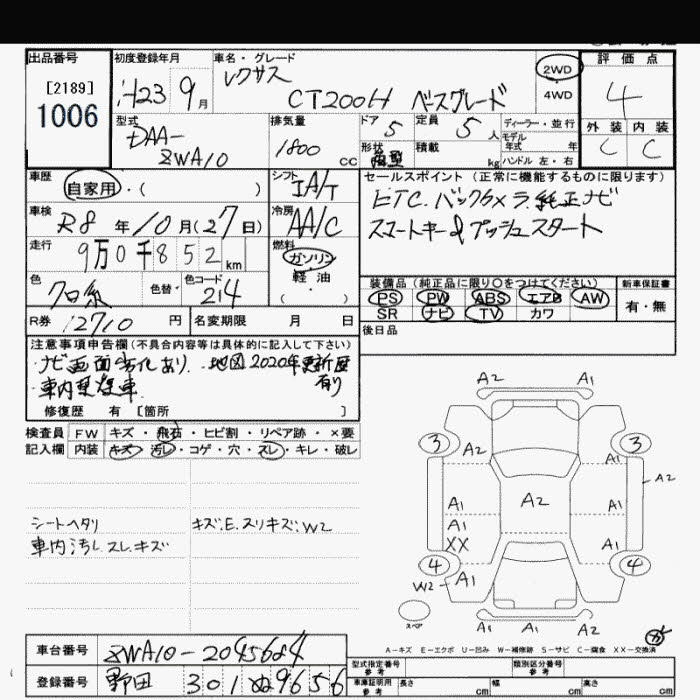 出品番号
[2189]
1006
初度登録年月
H23 9月
車名・グレード
レクサス
CT200H ベースグレード
2WD
4WD
評価点
4
外装 内装
C C
型式
DAA-
ZWA10
排気量
1800 cc
ドア 5
定員 5人
形状
積載 kg
ディーラー・並行
モデル年式 年
ハンドル 左・右
車歴
自家用・( )
シフト
IA/T
車検
R8年10月(27日)
冷房
AA/C
走行
9万0千852km
燃料
ガソリン
軽油
( )
色
クロ系
色替・
色コード
214
R券 12710円
名変期限 月 日
セールスポイント(正常に機能するものに限ります)
ETC. バックカメラ.純正ナビ
スマートキー&プッシュスタート
装備品(純正品に限り○をつけてください)
PS PW ABS エアB AW
SR ナビ TV カワ
新車保証書
有・無
後日品
注意事項申告欄(不具合内容等は具体的に記入して下さい)
・ナビ画面劣化あり. 地図2020年更新歴有り
・車内
修復歴 有 [箇所 ]
検査員 FW キズ・飛石・ヒビ割・リペア跡・×要
記入欄 内装 キズ・汚レ・コゲ・穴・スレ・キレ・破レ
シートヘタリ
車内汚レ.スレ.キズ
キズ.E.スリキズ.W2
A2 A1
3 3
A2 A1
A2
A1 A2 A1
A1
XX A1
4 4
W2 A1
スペア
A1 A1 A2
A-キズ E-エクボ U-凹み W-補修跡 S-サビ C-腐食 XX-交換済
車台番号 ZWA10-2045684
登録番号 野田 301 ぬ9656
型式指定番号 参考
類別区分番号 参考
車庫証明用 参考
長さ cm
幅 cm
高さ cm